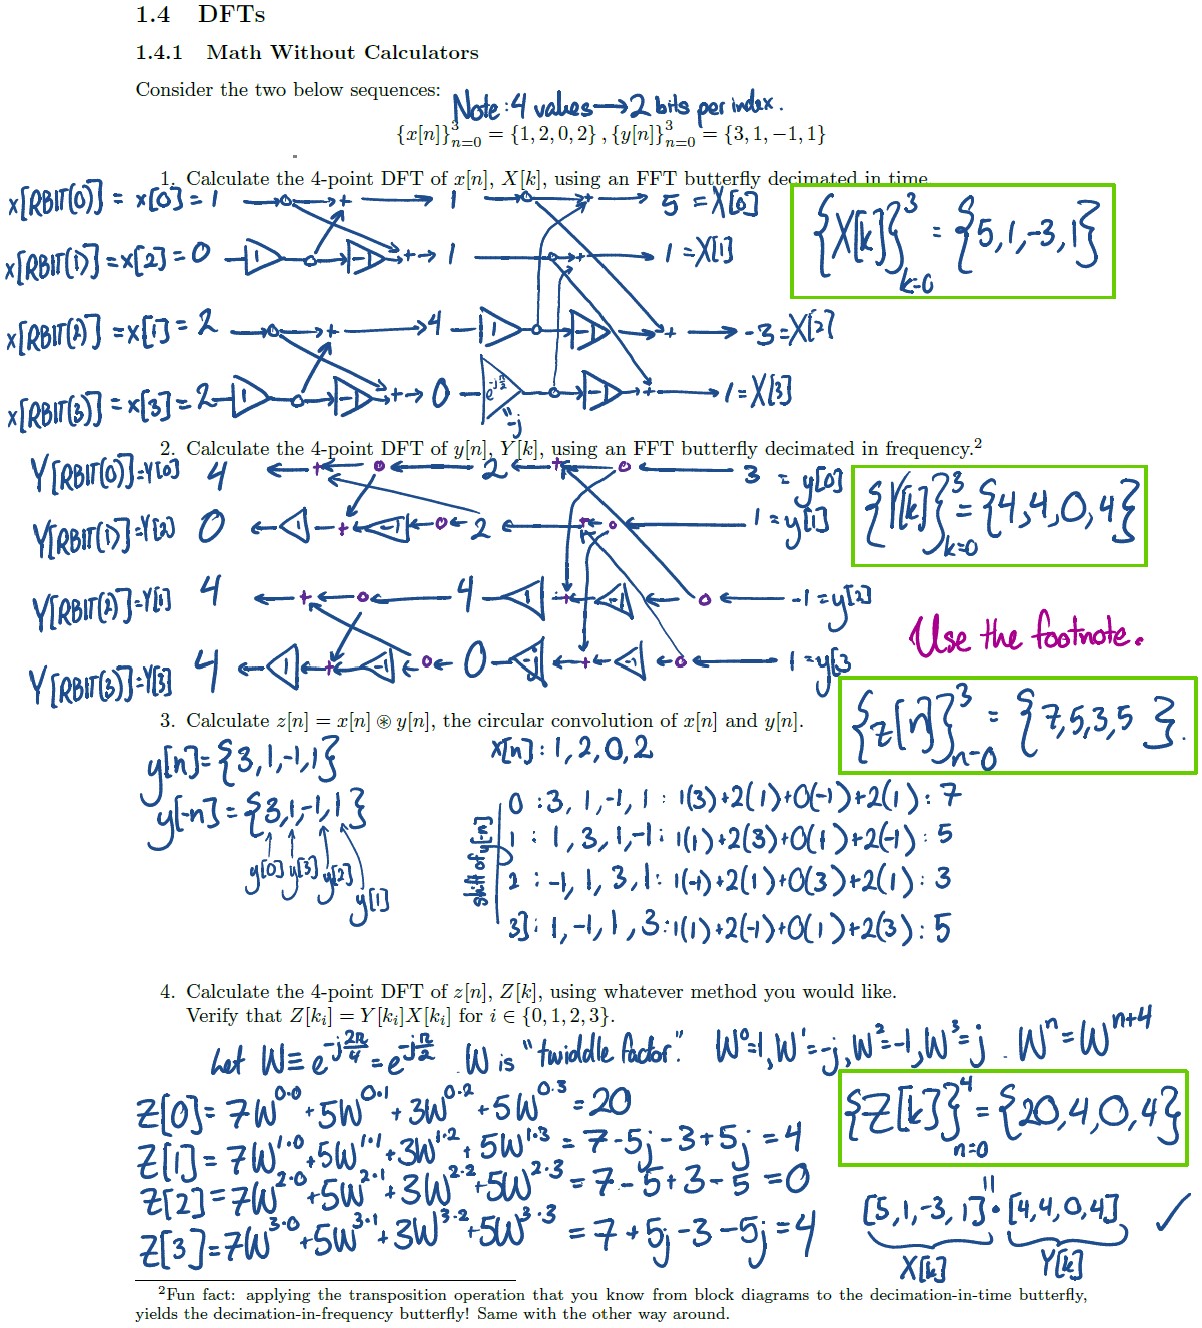 1.4 DFTs
1.4.1 Math Without Calculators
Consider the two below sequences:
Note: 4 values → 2 bits per index.
{x[n]}³ₙ₌₀ = {1, 2, 0, 2} , {y[n]}³ₙ₌₀ = {3, 1, −1, 1}
1. Calculate the 4-point DFT of x[n], X[k], using an FFT butterfly decimated in time
x[RBIT(0)] = x[0] = 1 + 1 + 5 = X[0]
x[RBIT(1)] = x[2] = 0 1 -1 + 1 + 1 = X[1]
x[RBIT(2)] = x[1] = 2 + 4 1 -1 + -3 = X[2]
x[RBIT(3)] = x[3] = 2 1 -1 + 0 e^{-jπ/2} -1 + 1 = X[3]
" -j
{X[k]}³ₖ₌₀ = {5, 1, -3, 1}
2. Calculate the 4-point DFT of y[n], Y[k], using an FFT butterfly decimated in frequency.²
Y[RBIT(0)] = Y[0] 4 + 2 + 3 = y[0]
Y[RBIT(1)] = Y[2] 0 1 + -1 2 + 1 = y[1]
Y[RBIT(2)] = Y[1] 4 + 4 1 + -1 -1 = y[2]
Y[RBIT(3)] = Y[3] 4 1 + -1 0 -j + -1 1 = y[3
{Y[k]}³ₖ₌₀ = {4, 4, 0, 4}
Use the footnote.
3. Calculate z[n] = x[n] ⊛ y[n], the circular convolution of x[n] and y[n].
{z[n]}³ₙ₌₀ = {7, 5, 3, 5}.
y[n] = {3, 1, -1, 1}
y[-n] = {3, 1, -1, 1}
y[0] y[3] y[2] y[1]
x[n] : 1, 2, 0, 2
shift of y[-n]
0 : 3, 1, -1, 1 : 1(3)+2(1)+0(-1)+2(1) : 7
1 : 1, 3, 1, -1 : 1(1)+2(3)+0(1)+2(-1) : 5
2 : -1, 1, 3, 1 : 1(-1)+2(1)+0(3)+2(1) : 3
3] : 1, -1, 1, 3 : 1(1)+2(-1)+0(1)+2(3) : 5
4. Calculate the 4-point DFT of z[n], Z[k], using whatever method you would like.
Verify that Z[kᵢ] = Y[kᵢ]X[kᵢ] for i ∈ {0, 1, 2, 3}.
Let W ≡ e^{-j2π/4} = e^{-jπ/2}. W is "twiddle factor." W⁰=1, W¹=-j, W²=-1, W³=j. Wⁿ = Wⁿ⁺⁴
Z[0] = 7W^{0·0} + 5W^{0·1} + 3W^{0·2} + 5W^{0·3} = 20
Z[1] = 7W^{1·0} + 5W^{1·1} + 3W^{1·2} + 5W^{1·3} = 7 - 5j - 3 + 5j = 4
Z[2] = 7W^{2·0} + 5W^{2·1} + 3W^{2·2} + 5W^{2·3} = 7 - 5 + 3 - 5 = 0
Z[3] = 7W^{3·0} + 5W^{3·1} + 3W^{3·2} + 5W^{3·3} = 7 + 5j - 3 - 5j = 4
{Z[k]}⁴ₙ₌₀ = {20, 4, 0, 4}
"
[5, 1, -3, 1] · [4, 4, 0, 4] ✓
X[k] Y[k]
²Fun fact: applying the transposition operation that you know from block diagrams to the decimation-in-time butterfly,
yields the decimation-in-frequency butterfly! Same with the other way around.